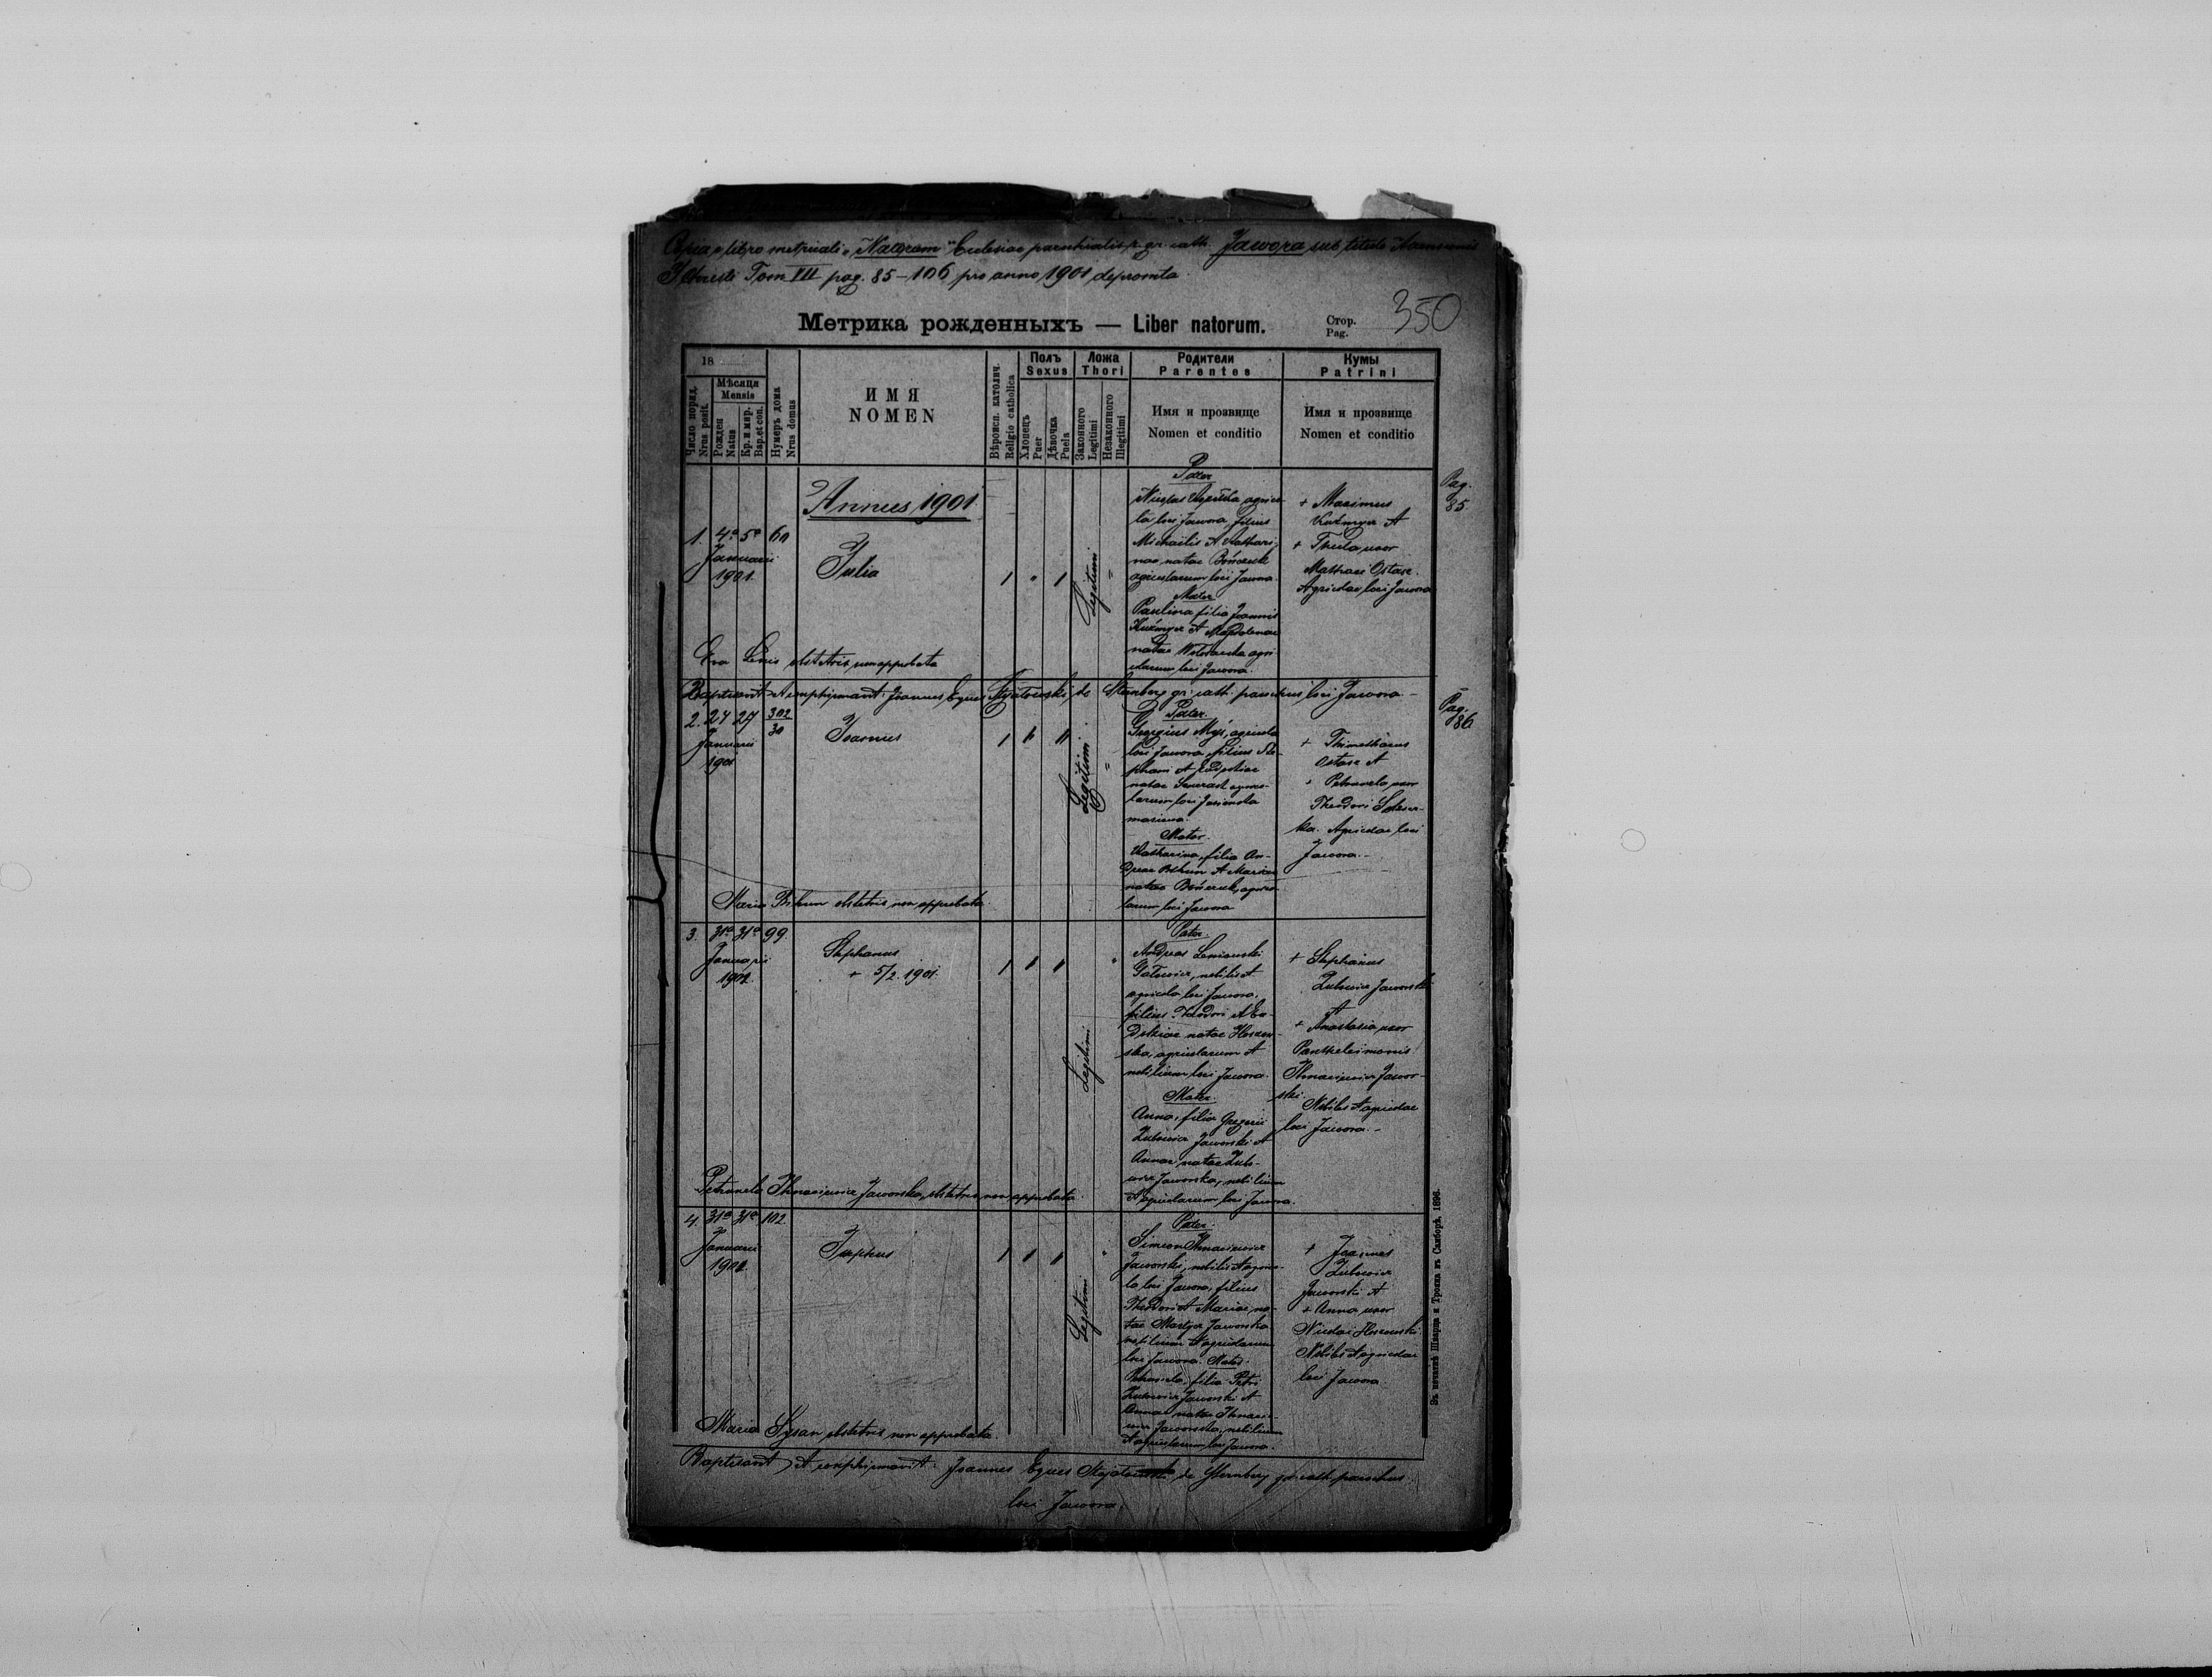 Copia e libro metricali "Natorum" Ecclesiae parochialis r. gr. cath. Jawora sub titulo Ascensionis
J. Christi Tom VII pag. 85–106 pro anno 1901 depromta.
Метрика рожденныхъ — Liber natorum.
Стор.
Pag.
350
18
Число поряд.
Nrus posit.
Мѣсяця
Mensis
Рожден
Natus
Бр. и мир.
Bap. et con.
Нумеръ дома
Nrus domus
ИМЯ
NOMEN
Вѣроисп. католич.
Religio catholica
Полъ
Sexus
Хлопецъ
Puer
Дѣвочка
Puela
Ложа
Thori
Законного
Legitimi
Незаконного
Illegitimi
Родители
Parentes
Имя и прозвище
Nomen et conditio
Кумы
Patrini
Имя и прозвище
Nomen et conditio
Annus 1901
Pag.
85
1. 4º 5º 60
Januarii
1901.
Julia
1 " 1
Legitimi
Pater
agrico-
la loci Jawora, filius
Michaelis et Kathari-
nae natae
agricolarum loci Jawora.
Mater
Paulina filia Joannis
Kuźmycz et Magdalenae
natae agri-
colarum loci Jawora.
+ Maximus
Kuźmycz et
+ Thecla uxor
Matthaei Ostasz.
Agricolae loci Jawora
Eva obstetrix non approbata
Baptisavit et confirmavit: Joannes Eques de Sternberg gr. cath. parochus loci Jawora.
Pag.
86
2. 24 27 302
30
Januarii
1901
Joannes
Legitimi
Pater.
Georgius Myś, agricola
loci Jawora, filius Ste-
phani et
natae agrico-
larum loci Jasionka
masiowa.
Mater.
Katharina, filia An-
dreae Bihun et Mariae
natae agrico-
larum loci Jawora
+ Thimotheus
Ostasz et
+ Petronela uxor
Theodori
Agricolae loci
Jawora.
Maria Bihun obstetrix non approbata
3. 31º 31º 99.
Januarii
1901.
Stephanus
+ 5/2 1901.
1 1 1
Legitimi
Pater.
Andreas
nobilis et
agricola loci Jawora,
filius Theodori et Eu-
dokiae natae
agricolarum et
nobilium loci Jawora.
Mater.
Anna, filia Gregorii
Zubowicz Jaworski et
Annae natae Zubo-
wicz Jaworska, nobilium
et agricolarum loci Jawora.
+ Stephanus
Zubowicz Jaworski
et
+ Anastasia uxor
Panthelemonis
Ihnacewicz Jawor-
ski.
Nobiles et agricolae
loci Jawora.
Petronela Ihnacewicz Jaworska, obstetrix non approbata.
4. 31º 31º 102
Januarii
1901.
Josephus
1 1 1
Legitimi
Pater.
Simeon Ihnacewicz
Jaworski, nobilis et agrico-
la loci Jawora, filius
Theodori et Mariae, na-
tae Martycz Jaworska
nobilium et agricolarum
loci Jawora. Mater.
Petronela, filia Petri
Zubowicz Jaworski et
Annae natae Ihnace-
wicz Jaworska, nobilium
et agricolarum loci Jawora.
+ Joannes
Zubowicz
Jaworski et
+ Anna uxor
Nicolai
Nobiles et agricolae
loci Jawora
Maria Sysan obstetrix non approbata.
Baptisavit et confirmavit: Joannes Eques de Sternberg gr. cath. parochus
loci Jawora.
Въ печатнѣ Шварца и Трояна въ Самборѣ. 1896.